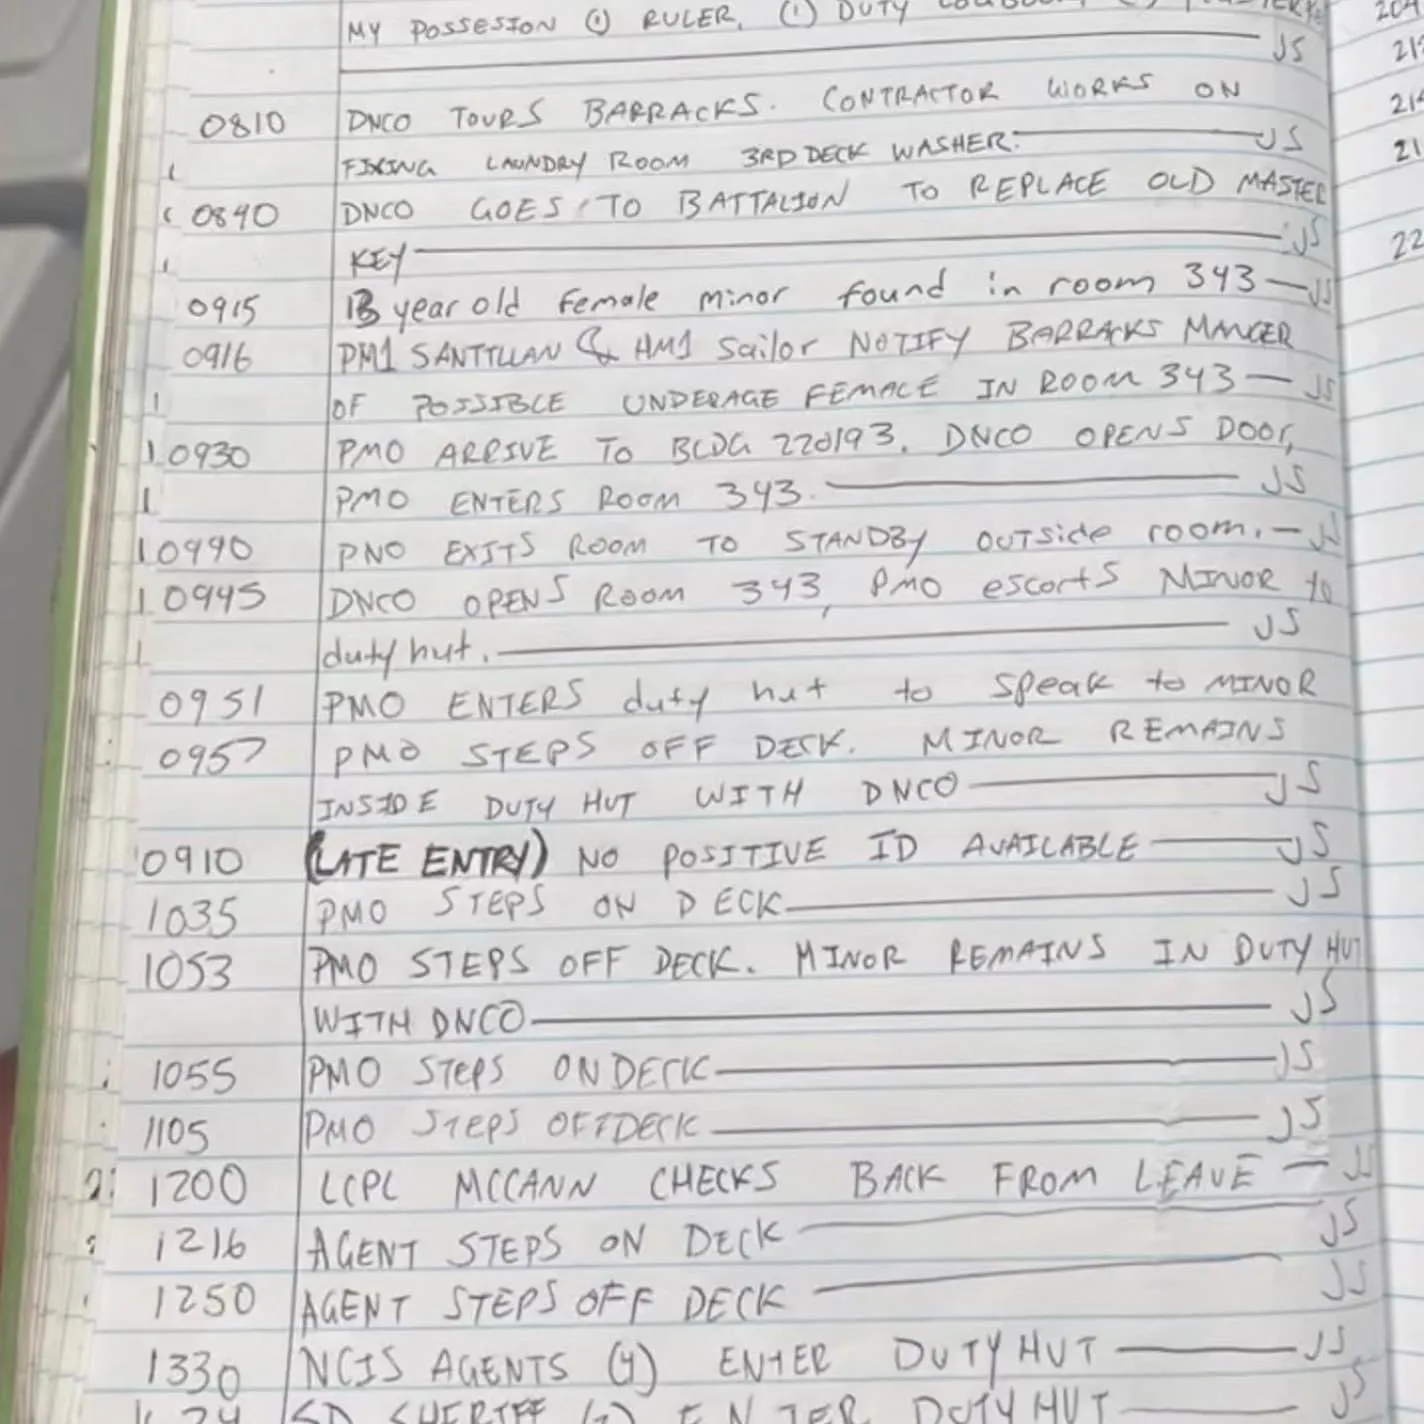 MY POSSESION (1) RULER, (1) DUTY
JS
0810 DNCO TOURS BARRACKS. CONTRACTOR WORKS ON
FIXING LAUNDRY ROOM 3RD DECK WASHER. JS
0840 DNCO GOES TO BATTALION TO REPLACE OLD MASTER
KEY JS
0915 13 year old female minor found in room 343 JS
0916 PM1 SANTILLAN & HM1 Sailor NOTIFY BARRACKS MANGER
OF POSSIBLE UNDERAGE FEMALE IN ROOM 343 JS
0930 PMO ARRIVE TO BLDG 220193. DNCO OPENS DOOR,
PMO ENTERS ROOM 343. JS
0940 PMO EXITS ROOM TO STANDBY OUTSide room. JS
0945 DNCO OPENS ROOM 343, PMO escorts MINOR to
duty hut. JS
0951 PMO ENTERS duty hut to speak to MINOR
0957 PMO STEPS OFF DECK. MINOR REMAINS
INSIDE DUTY HUT WITH DNCO JS
0910 (LATE ENTRY) NO POSITIVE ID AVAILABLE JS
1035 PMO STEPS ON DECK JS
1053 PMO STEPS OFF DECK. MINOR REMAINS IN DUTY HUT
WITH DNCO JS
1055 PMO STEPS ON DECK JS
1105 PMO STEPS OFF DECK JS
1200 LCPL MCCANN CHECKS BACK FROM LEAVE JS
1216 AGENT STEPS ON DECK JS
1250 AGENT STEPS OFF DECK JS
1330 NCIS AGENTS (4) ENTER DUTY HUT JS
SD SHERIFF ENTER DUTY HUT JS